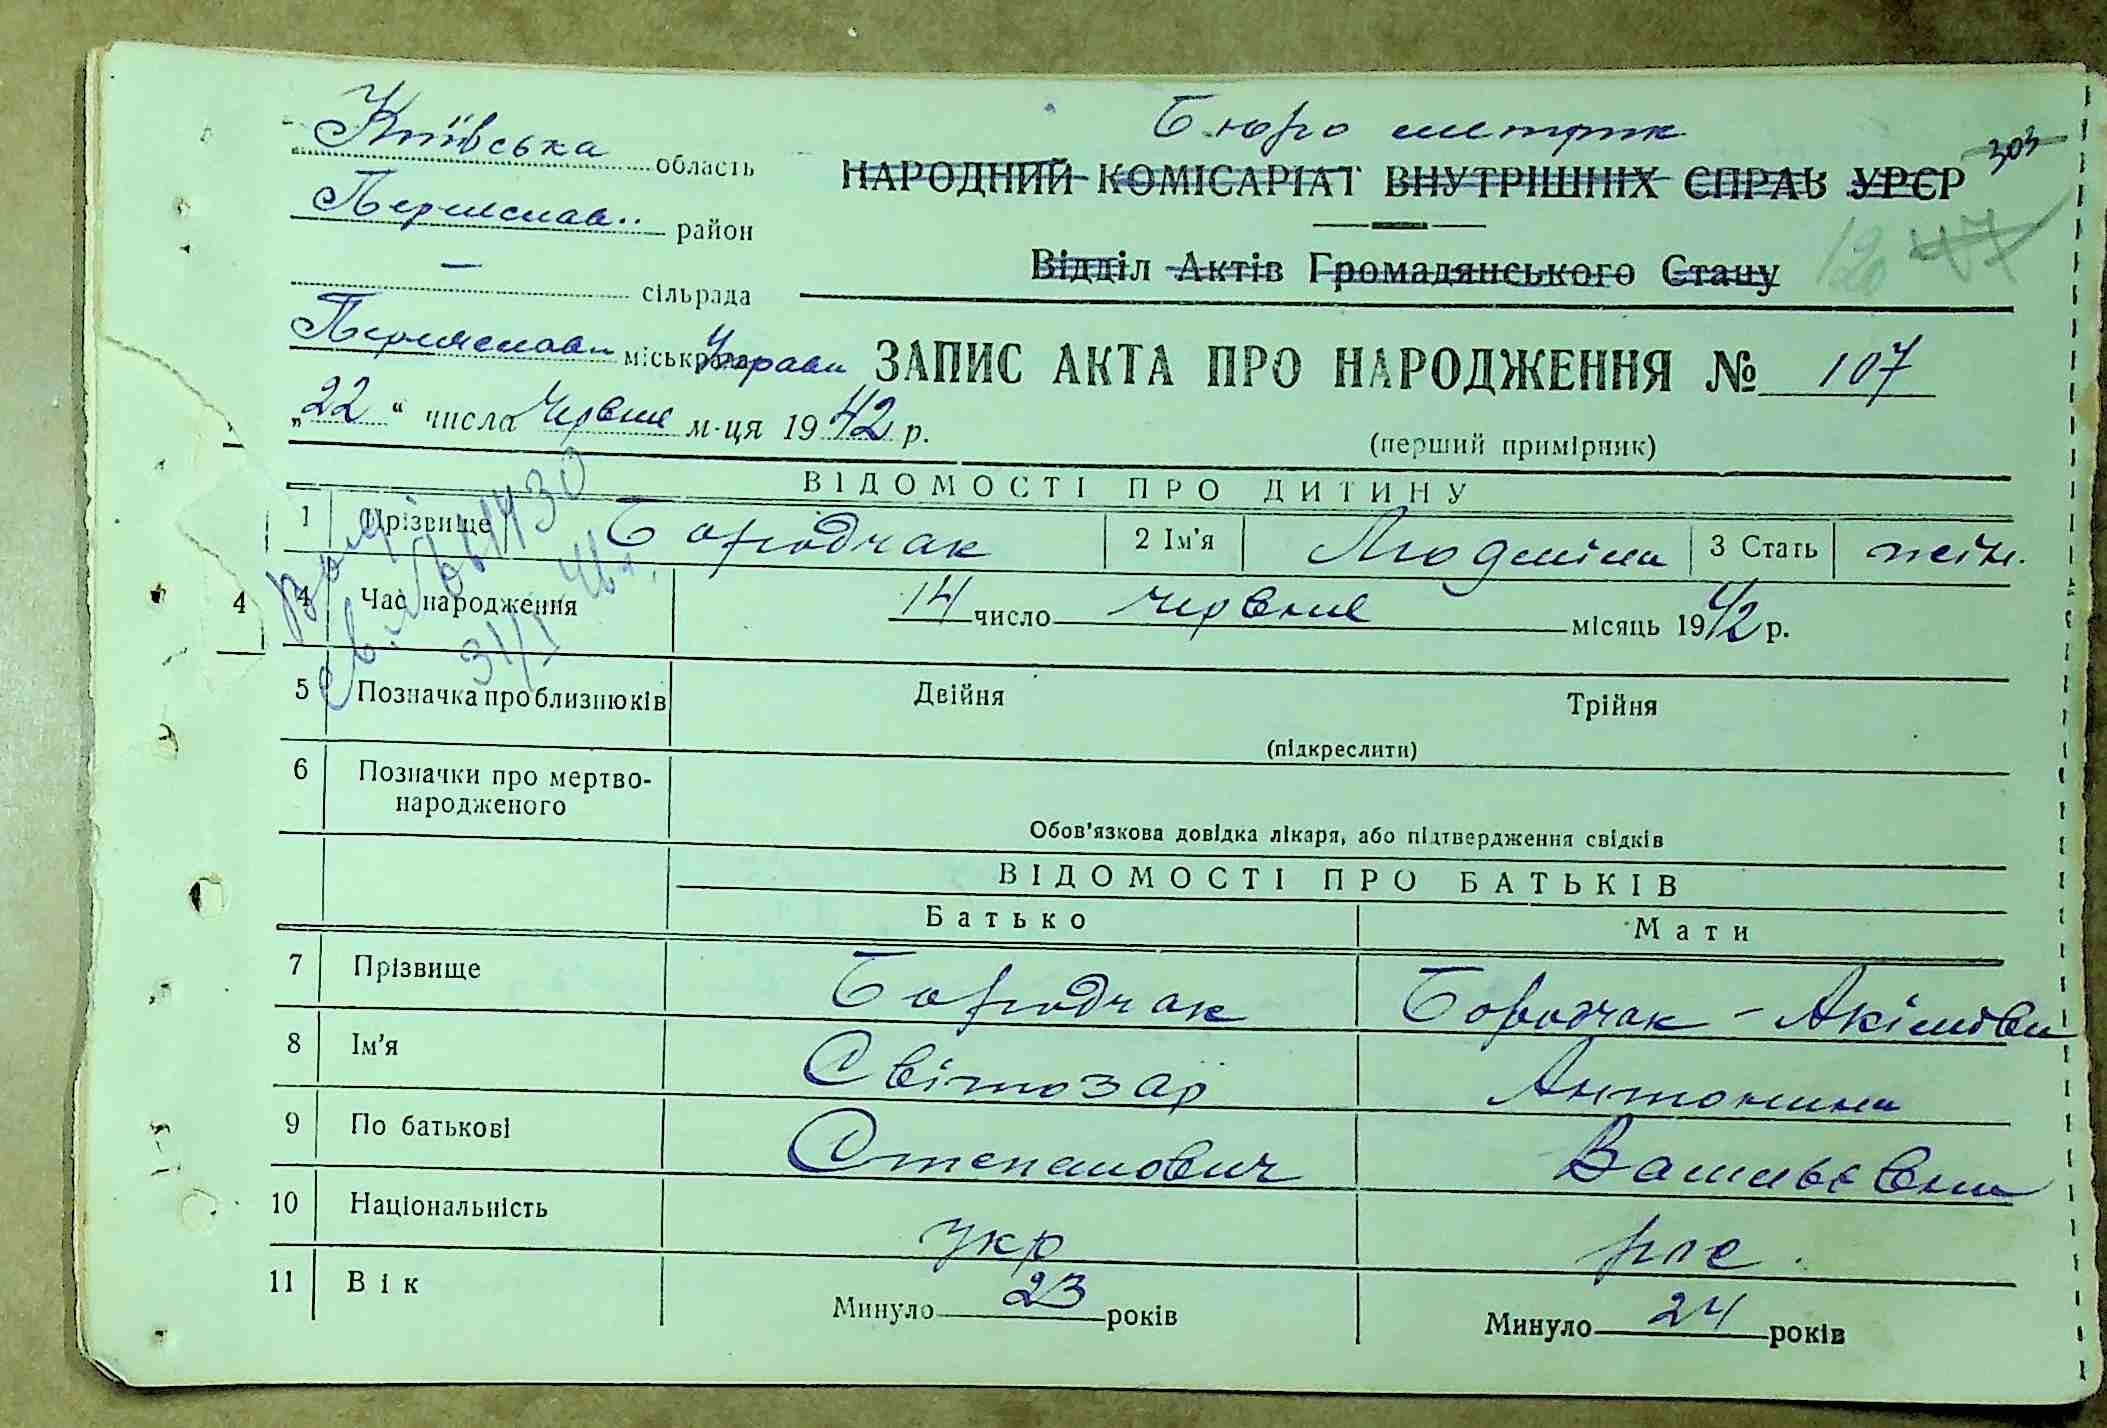 Київська область
Бюро метрик
303
НАРОДНИЙ КОМІСАРІАТ ВНУТРІШНІХ СПРАВ УРСР
Переяслав.. район
120 47
Відділ Актів Громадянського Стану
— сільрада
Переяслав. міськрада Управи
ЗАПИС АКТА ПРО НАРОДЖЕННЯ № 107
„22“ числа Червня м-ця 1942 р.
(перший примірник)
ВІДОМОСТІ ПРО ДИТИНУ
1 Прізвище Бородчак 2 Ім'я Людміла 3 Стать жін.
4 4 Час народження 14 число червня місяць 1942 р.
31/I 46 г.
5 Позначка про близнюків Двійня Трійня
(підкреслити)
6 Позначки про мертво-
народженого
Обов'язкова довідка лікаря, або підтвердження свідків
ВІДОМОСТІ ПРО БАТЬКІВ
Батько Мати
7 Прізвище Бородчак Бородчак - Акімова
8 Ім'я Світозар Антонина
9 По батькові Степанович Васильєвна
10 Національність укр рос.
11 Вік Минуло 23 років Минуло 24 років